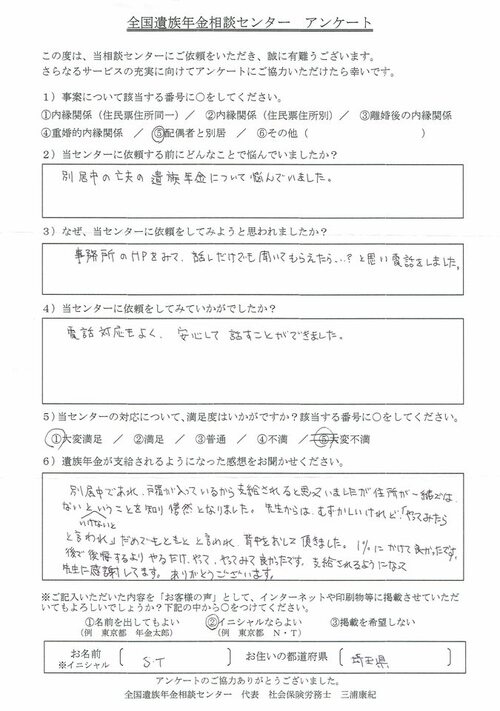 全国遺族年金相談センター アンケート
この度は、当相談センターにご依頼をいただき、誠に有難うございます。
さらなるサービスの充実に向けてアンケートにご協力いただけたら幸いです。
1）事案について該当する番号に○をしてください。
①内縁関係（住民票住所同一）／ ②内縁関係（住民票住所別）／ ③離婚後の内縁関係
④重婚的内縁関係 ／ ⑤配偶者と別居 ／ ⑥その他（ ）
2）当センターに依頼する前にどんなことで悩んでいましたか？
別居中の亡夫の遺族年金について悩んでいました。
3）なぜ、当センターに依頼をしてみようと思われましたか？
事務所のHPをみて、話しだけでも聞いてもらえたら…？と思い電話をしました。
4）当センターに依頼をしてみていかがでしたか？
電話対応もよく、安心して話すことができました。
5）当センターの対応について、満足度はいかがですか？該当する番号に○をしてください。
①大変満足 ／ ②満足 ／ ③普通 ／ ④不満 ／ ⑤大変不満
6）遺族年金が支給されるようになった感想をお聞かせください。
別居中であれ、戸籍が入っているから支給されると思っていましたが住所が一緒では
ないといけないということを知り愕然となりました。先生からは、むずかしいけれど「やってみたら
と言われ」だめでもともとと言われ、背中をおして頂きました。1%にかけて良かったです。
後で後悔するよりやるだけ、やって、やってみて良かったです。支給されるようになって
先生に感謝してます。ありがとうございます。
※ご記入いただいた内容を「お客様の声」として、インターネットや印刷物等に掲載させていただ
いてもよろしいでしょうか？下記の中から○をつけてください。
①名前を出してもよい ②イニシャルならよい ③掲載を希望しない
（例 東京都 年金太郎） （例 東京都 N・T）
お名前 ※イニシャル 〔 S・T 〕 お住いの都道府県 〔 埼玉県 〕
アンケートのご協力ありがとうございました。
全国遺族年金相談センター 代表 社会保険労務士 三浦康紀